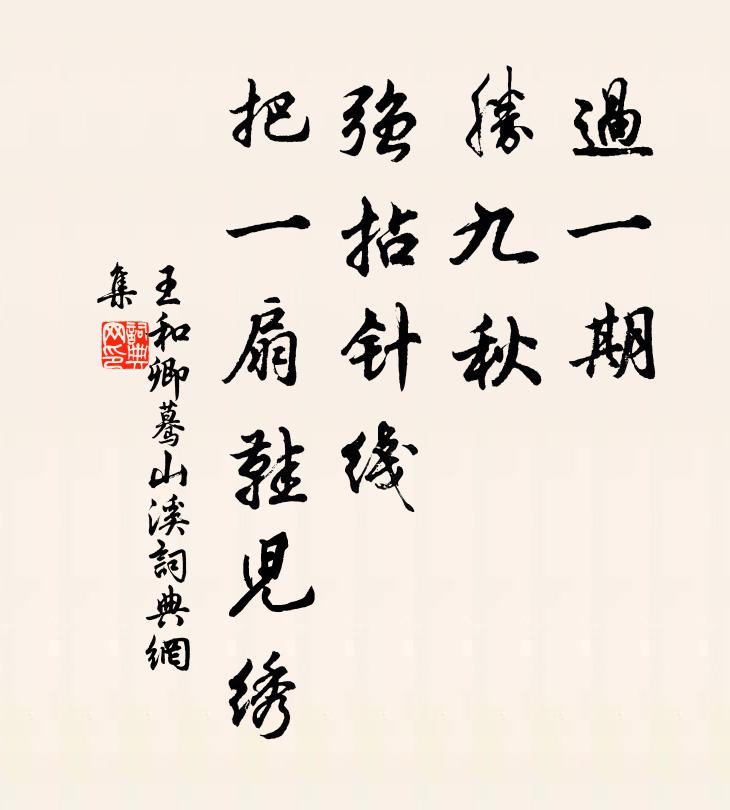 過一期
勝九秋
强拈针綫
把一扇鞋兒綉
王和卿蓦山溪詞典網
集
詞典
网印